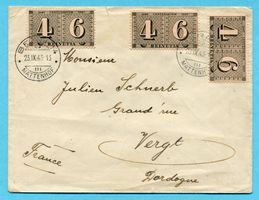 4 6
HELVETIA
4 6
HELVETIA
4 6
HELVETIA
MATTENHOF
Monsieur
Julien Schnerb
Grand'rue
Vergt
Dordogne
France